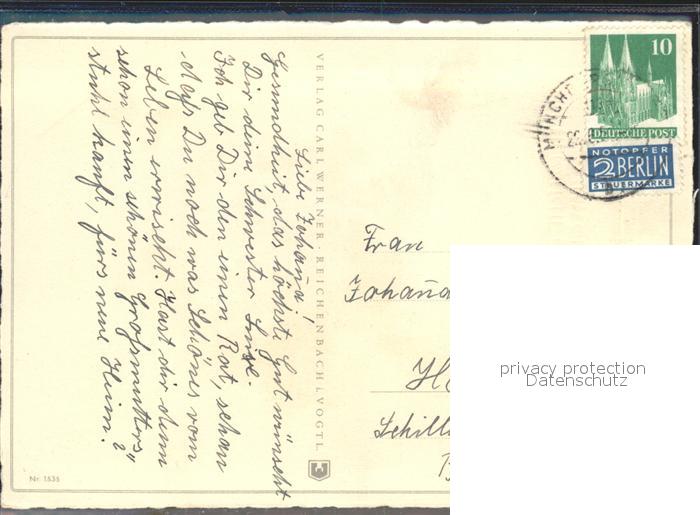 Liebe Johaña!
Gesundheit, das höchste Gut wünscht
Dir deine Schwester Luise.
Ich geb Dir den einen Rat, schau
Du noch was Schönes vom
Leben erwischt. Hast dir denn
schon einen schönen Großmutters"
stuhl kauft, fürs neue Heim?
VERLAG CARL WERNER · REICHENBACH I. VOGTL.
Nr. 1535
10
DEUTSCHE POST
NOTOPFER
2 BERLIN
STEUERMARKE
MÜNCHEN
Frau
Johaña
Schill
privacy protection
Datenschutz